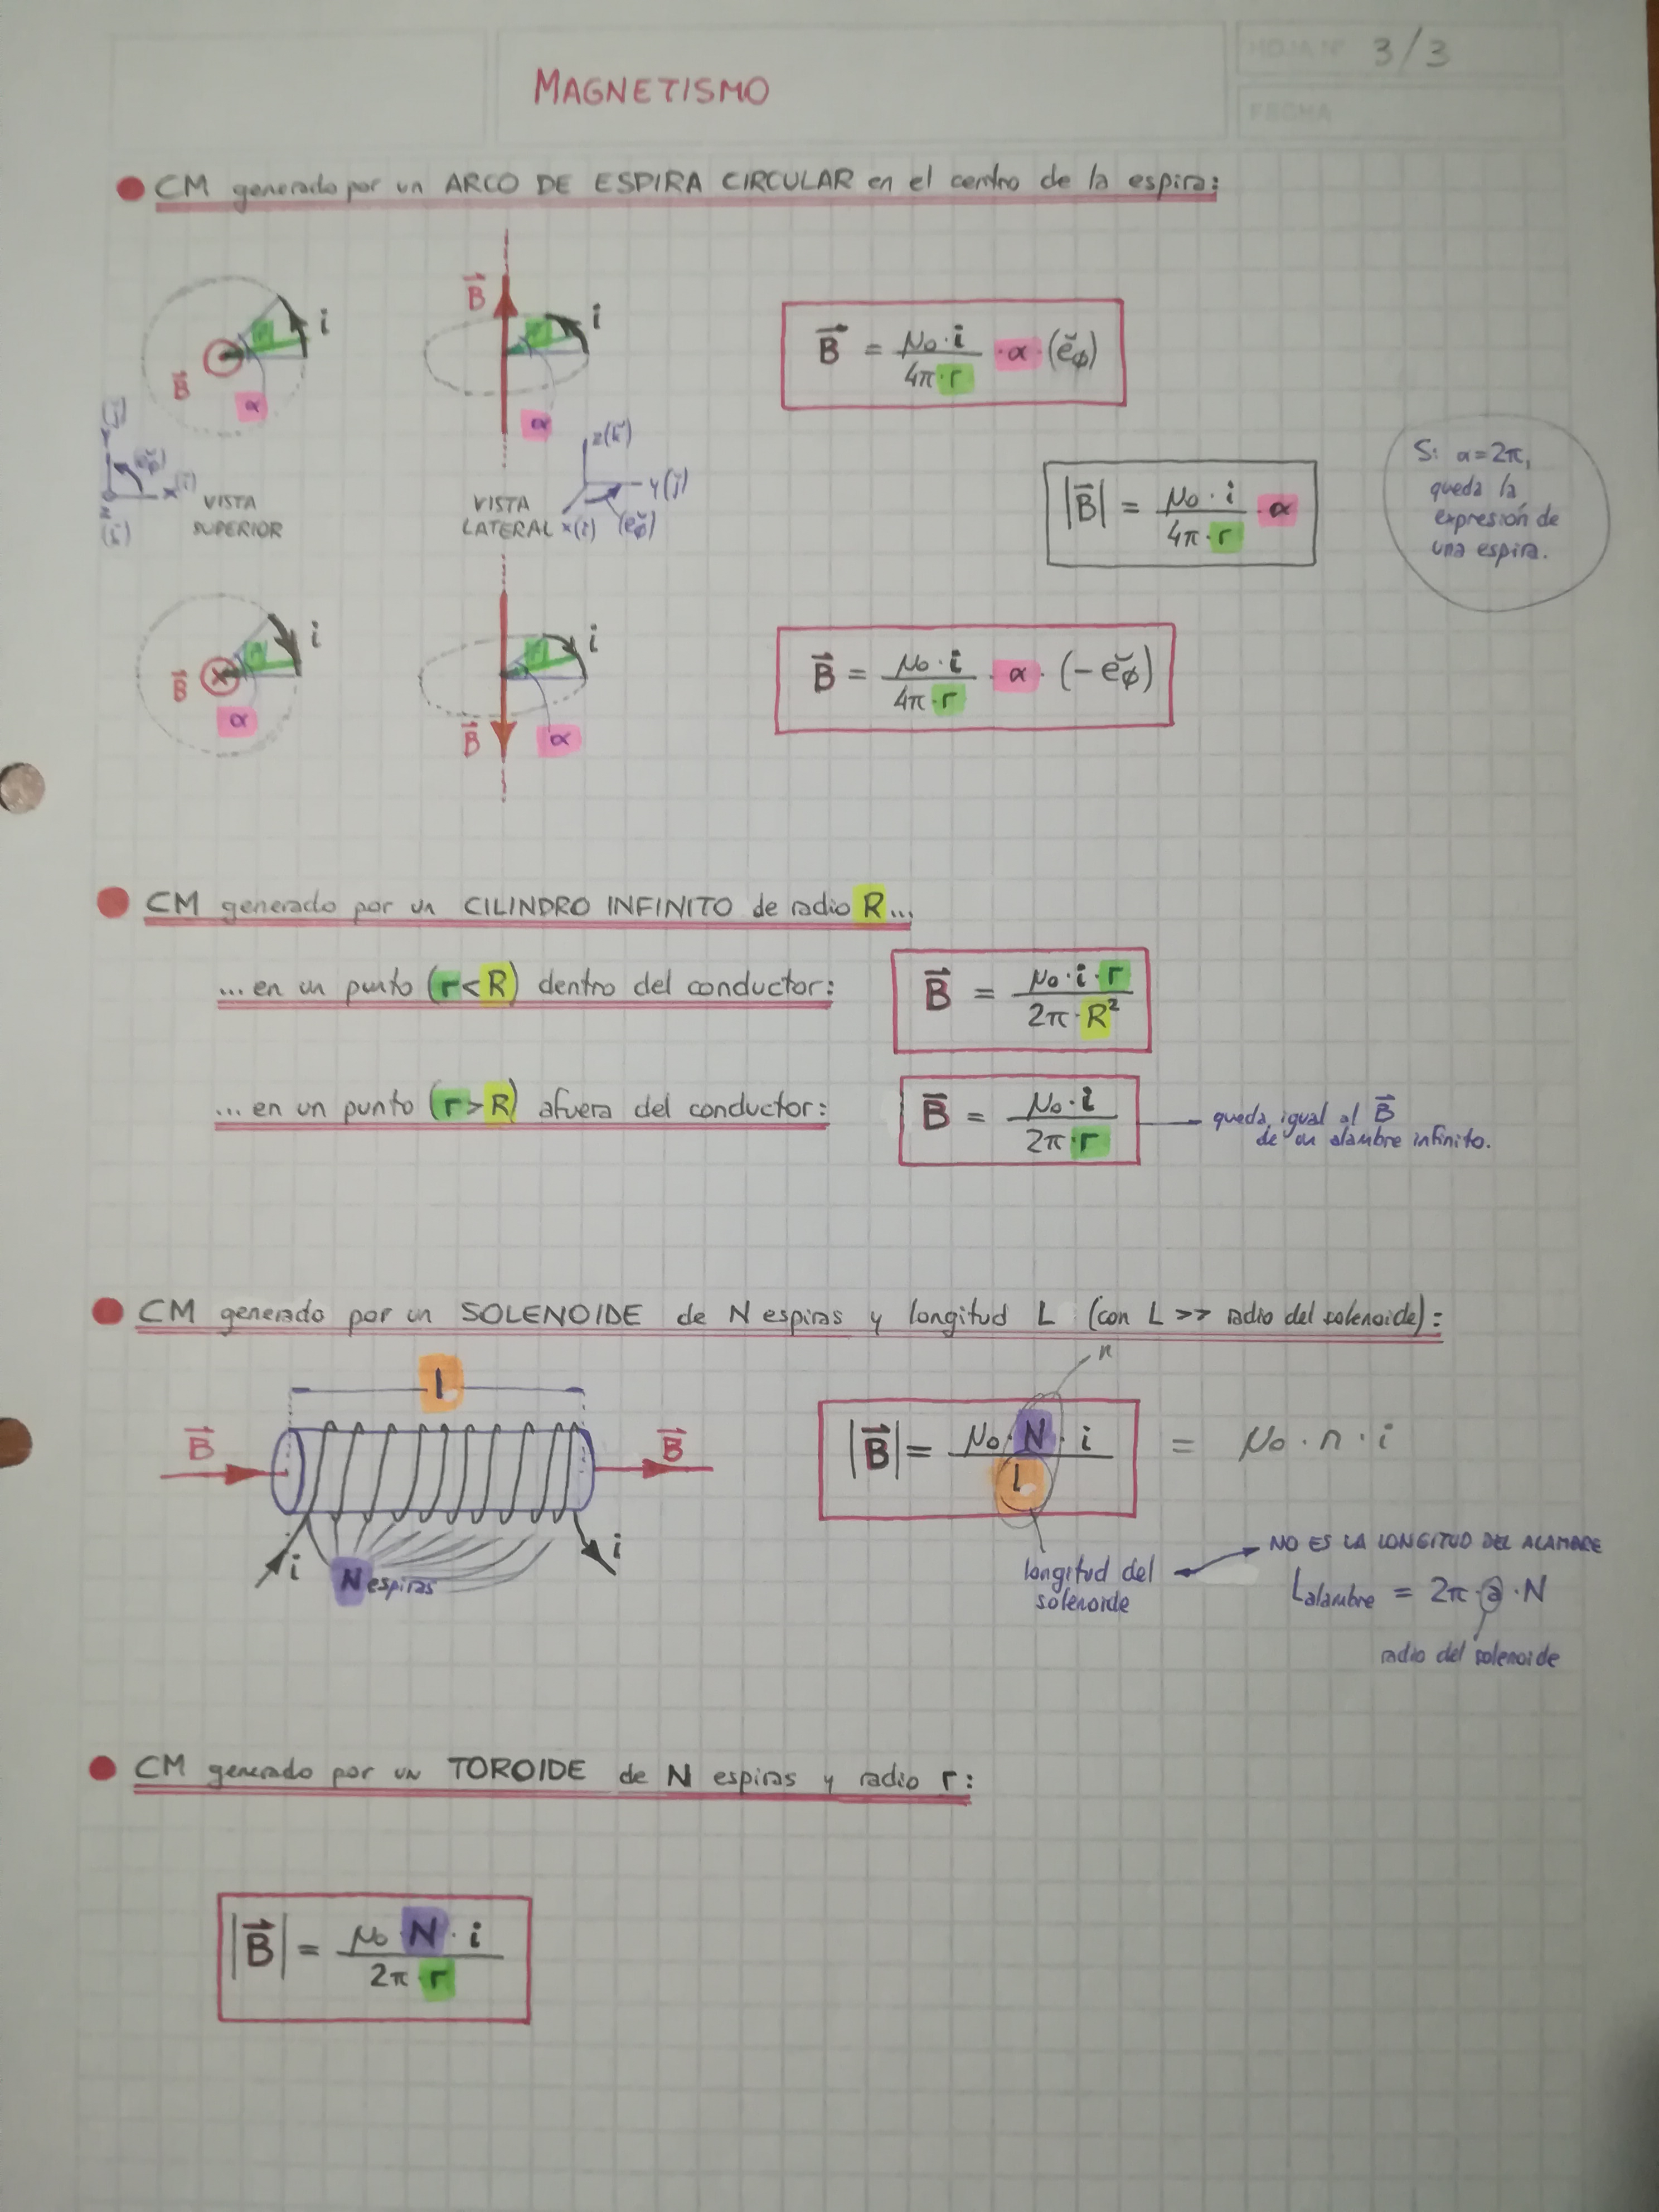 HOJA N° 3/3
MAGNETISMO
FECHA
CM generado por un ARCO DE ESPIRA CIRCULAR en el centro de la espira:
i
r
B⃗
α
(ǰ)
y
(ĕφ)
x(ĭ)
z
(k̆)
VISTA
SUPERIOR
B⃗
r
i
α
z(k̆)
y(ǰ)
x(ĭ)
(ĕφ)
VISTA
LATERAL
B⃗ = μ₀·i / 4π·r · α · (ĕφ)
|B⃗| = μ₀·i / 4π·r · α
Si α=2π,
queda la
expresión de
una espira.
i
r
B⃗
α
i
r
B⃗
α
B⃗ = μ₀·i / 4π·r · α · (−ĕφ)
CM generado por un CILINDRO INFINITO de radio R...
...en un punto (r<R) dentro del conductor:
B⃗ = μ₀·i·r / 2π·R²
...en un punto (r>R) afuera del conductor:
B⃗ = μ₀·i / 2π·r
queda igual al B⃗
de un alambre infinito.
CM generado por un SOLENOIDE de N espiras y longitud L (con L >> radio del solenoide):
L
n
B⃗
B⃗
|B⃗| = μ₀·N·i / L = μ₀·n·i
i
i
N espiras
longitud del
solenoide
NO ES LA LONGITUD DEL ALAMBRE
Lalambre = 2π·a·N
radio del solenoide
CM generado por un TOROIDE de N espiras y radio r:
|B⃗| = μ₀·N·i / 2π·r